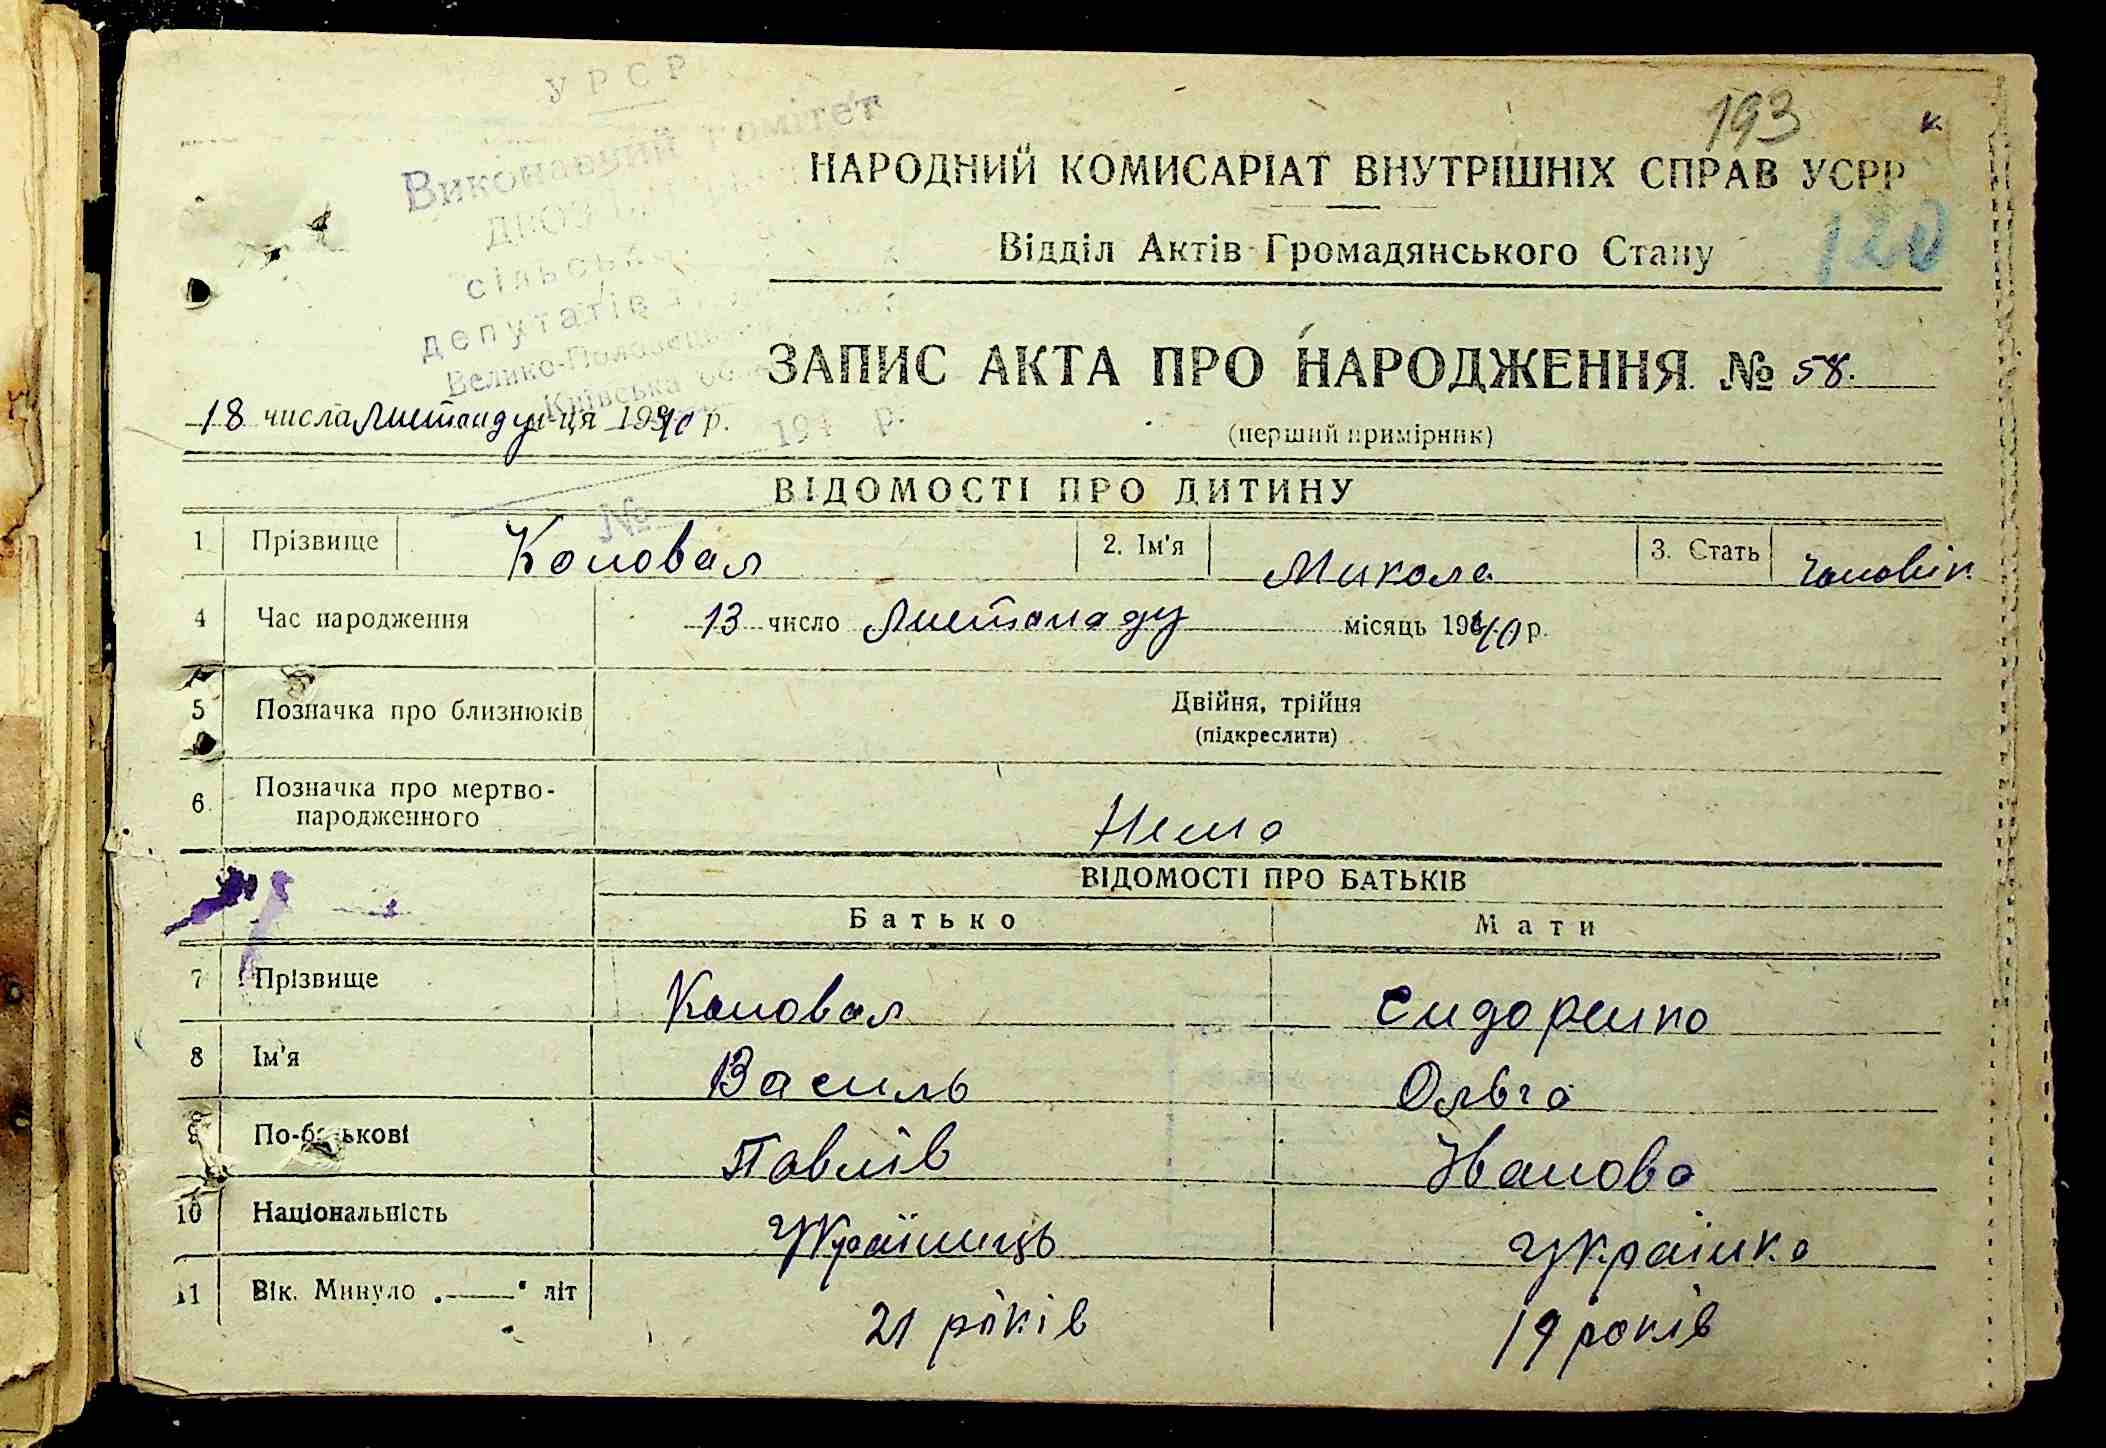 УРСР
193
к.
Виконавчий комітет
НАРОДНИЙ КОМИСАРІАТ ВНУТРІШНІХ СПРАВ УСРР
120
Відділ Актів Громадянського Стану
сільської
депутатів
Велико-Половецького
Київська
ЗАПИС АКТА ПРО НАРОДЖЕННЯ № 58.
18 числа листопаду м-ця 1940 р.
194 р.
(перший примірник)
№
ВІДОМОСТІ ПРО ДИТИНУ
1 Прізвище Коновал 2. Ім'я Микола 3. Стать Чоловік
4 Час народження 13 число Листопаду місяць 1940 р.
5 Позначка про близнюків Двійня, трійня
(підкреслити)
6 Позначка про мертво-
народженного Нема
ВІДОМОСТІ ПРО БАТЬКІВ
Батько Мати
7 Прізвище Коновал Сидоренко
8 Ім'я Василь Ольга
9 По-батькові Павлів Іванова
10 Національність Українець Українка
11 Вік. Минуло „—“ літ 21 років 19 років